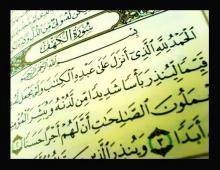 سُورَةُ الْكَهْفِ
الْحَمْدُ لِلَّهِ الَّذِي أَنزَلَ عَلَىٰ عَبْدِهِ الْكِتَابَ وَلَمْ
قَيِّمًا لِّيُنذِرَ بَأْسًا شَدِيدًا مِّن لَّدُنْهُ وَيُبَشِّرَ الْمُؤْ
يَعْمَلُونَ الصَّالِحَاتِ أَنَّ لَهُمْ أَجْرًا حَسَنًا
أَبَدًا ٣ وَيُنذِرَ الَّذِينَ